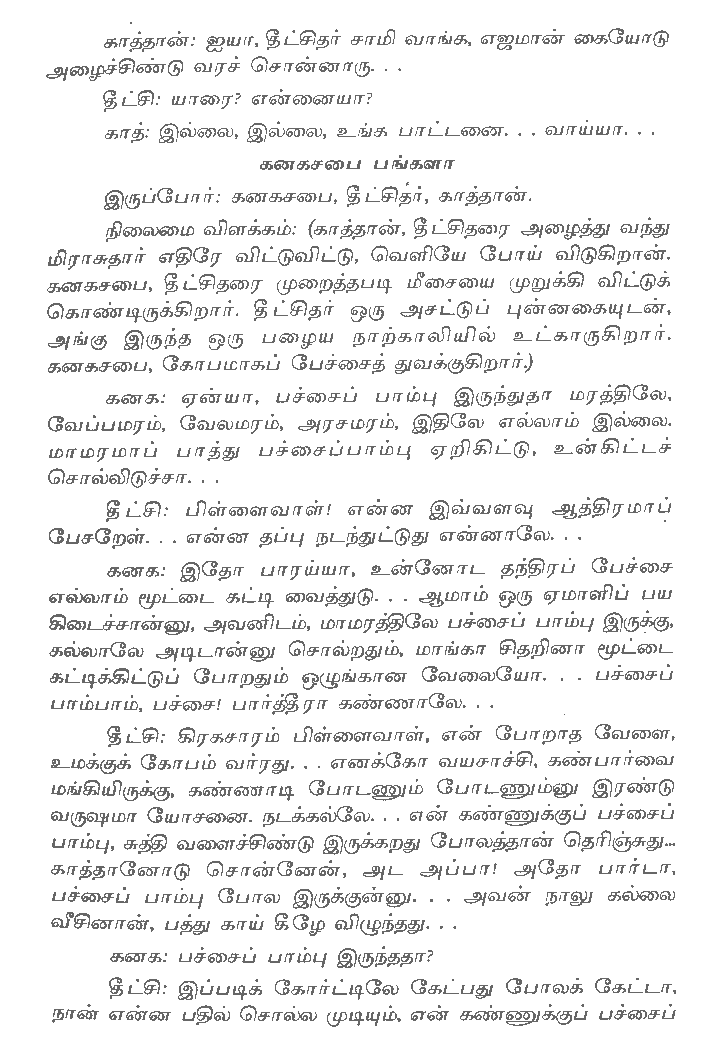 காத்தான்: ஐயா, தீட்சிதர் சாமி வாங்க, எஜமான் கையோடு
அழைச்சிண்டு வரச் சொன்னாரு. . .
தீட்சி: யாரை? என்னையா?
காத்: இல்லை, இல்லை, உங்க பாட்டனை. . . வாய்யா. . .
கனகசபை பங்களா
இருப்போர்: கனகசபை, தீட்சிதர், காத்தான்.
நிலைமை விளக்கம்: (காத்தான், தீட்சிதரை அழைத்து வந்து
மிராசுதார் எதிரே விட்டுவிட்டு, வெளியே போய் விடுகிறான்.
கனகசபை, தீட்சிதரை முறைத்தபடி மீசையை முறுக்கி விட்டுக்
கொண்டிருக்கிறார். தீட்சிதர் ஒரு அசட்டுப் புன்னகையுடன்,
அங்கு இருந்த ஒரு பழைய நாற்காலியில் உட்காருகிறார்.
கனகசபை, கோபமாகப் பேச்சைத் துவக்குகிறார்.)
கனக: ஏன்யா, பச்சைப் பாம்பு இருந்துதா மரத்திலே,
வேப்பமரம், வேலமரம், அரசமரம், இதிலே எல்லாம் இல்லை.
மாமரமாப் பாத்து பச்சைப்பாம்பு ஏறிகிட்டு, உன்கிட்டச்
சொல்லிடுச்சா. . .
தீட்சி: பிள்ளைவாள்! என்ன இவ்வளவு ஆத்திரமாப்
பேசறேள். . . என்ன தப்பு நடந்துட்டுது என்னாலே. . .
கனக: இதோ பாரய்யா, உன்னோட தந்திரப் பேச்சை
எல்லாம் மூட்டை கட்டி வைத்துடு. . . ஆமாம் ஒரு ஏமாளிப் பய
கிடைச்சான்னு, அவனிடம், மாமரத்திலே பச்சைப் பாம்பு இருக்கு,
கல்லாலே அடிடான்னு சொல்றதும், மாங்கா சிதறினா மூட்டை
கட்டிக்கிட்டுப் போறதும் ஒழுங்கான வேலையோ. . . பச்சைப்
பாம்பாம், பச்சை! பார்த்தீரா கண்ணாலே. . .
தீட்சி: கிரகசாரம் பிள்ளைவாள், என் போறாத வேளை,
உமக்குக் கோபம் வார்ரது. . . எனக்கோ வயசாச்சி, கண்பார்வை
மங்கியிருக்கு, கண்ணாடி போடணும் போடணும்னு இரண்டு
வருஷமா யோசனை. நடக்கல்லே. . . என் கண்ணுக்குப் பச்சைப்
பாம்பு, சுத்தி வளைச்சிண்டு இருக்கறது போலத்தான் தெரிஞ்சுது...
காத்தானோடு சொன்னேன், அட அப்பா! அதோ பார்டா,
பச்சைப் பாம்பு போல இருக்குன்னு. . . அவன் நாலு கல்லை
வீசினான், பத்து காய் கீழே விழுந்தது. . .
கனக: பச்சைப் பாம்பு இருந்ததா?
தீட்சி: இப்படிக் கோர்ட்டிலே கேட்பது போலக் கேட்டா,
நான் என்ன பதில் சொல்ல முடியும், என் கண்ணுக்குப் பச்சைப்